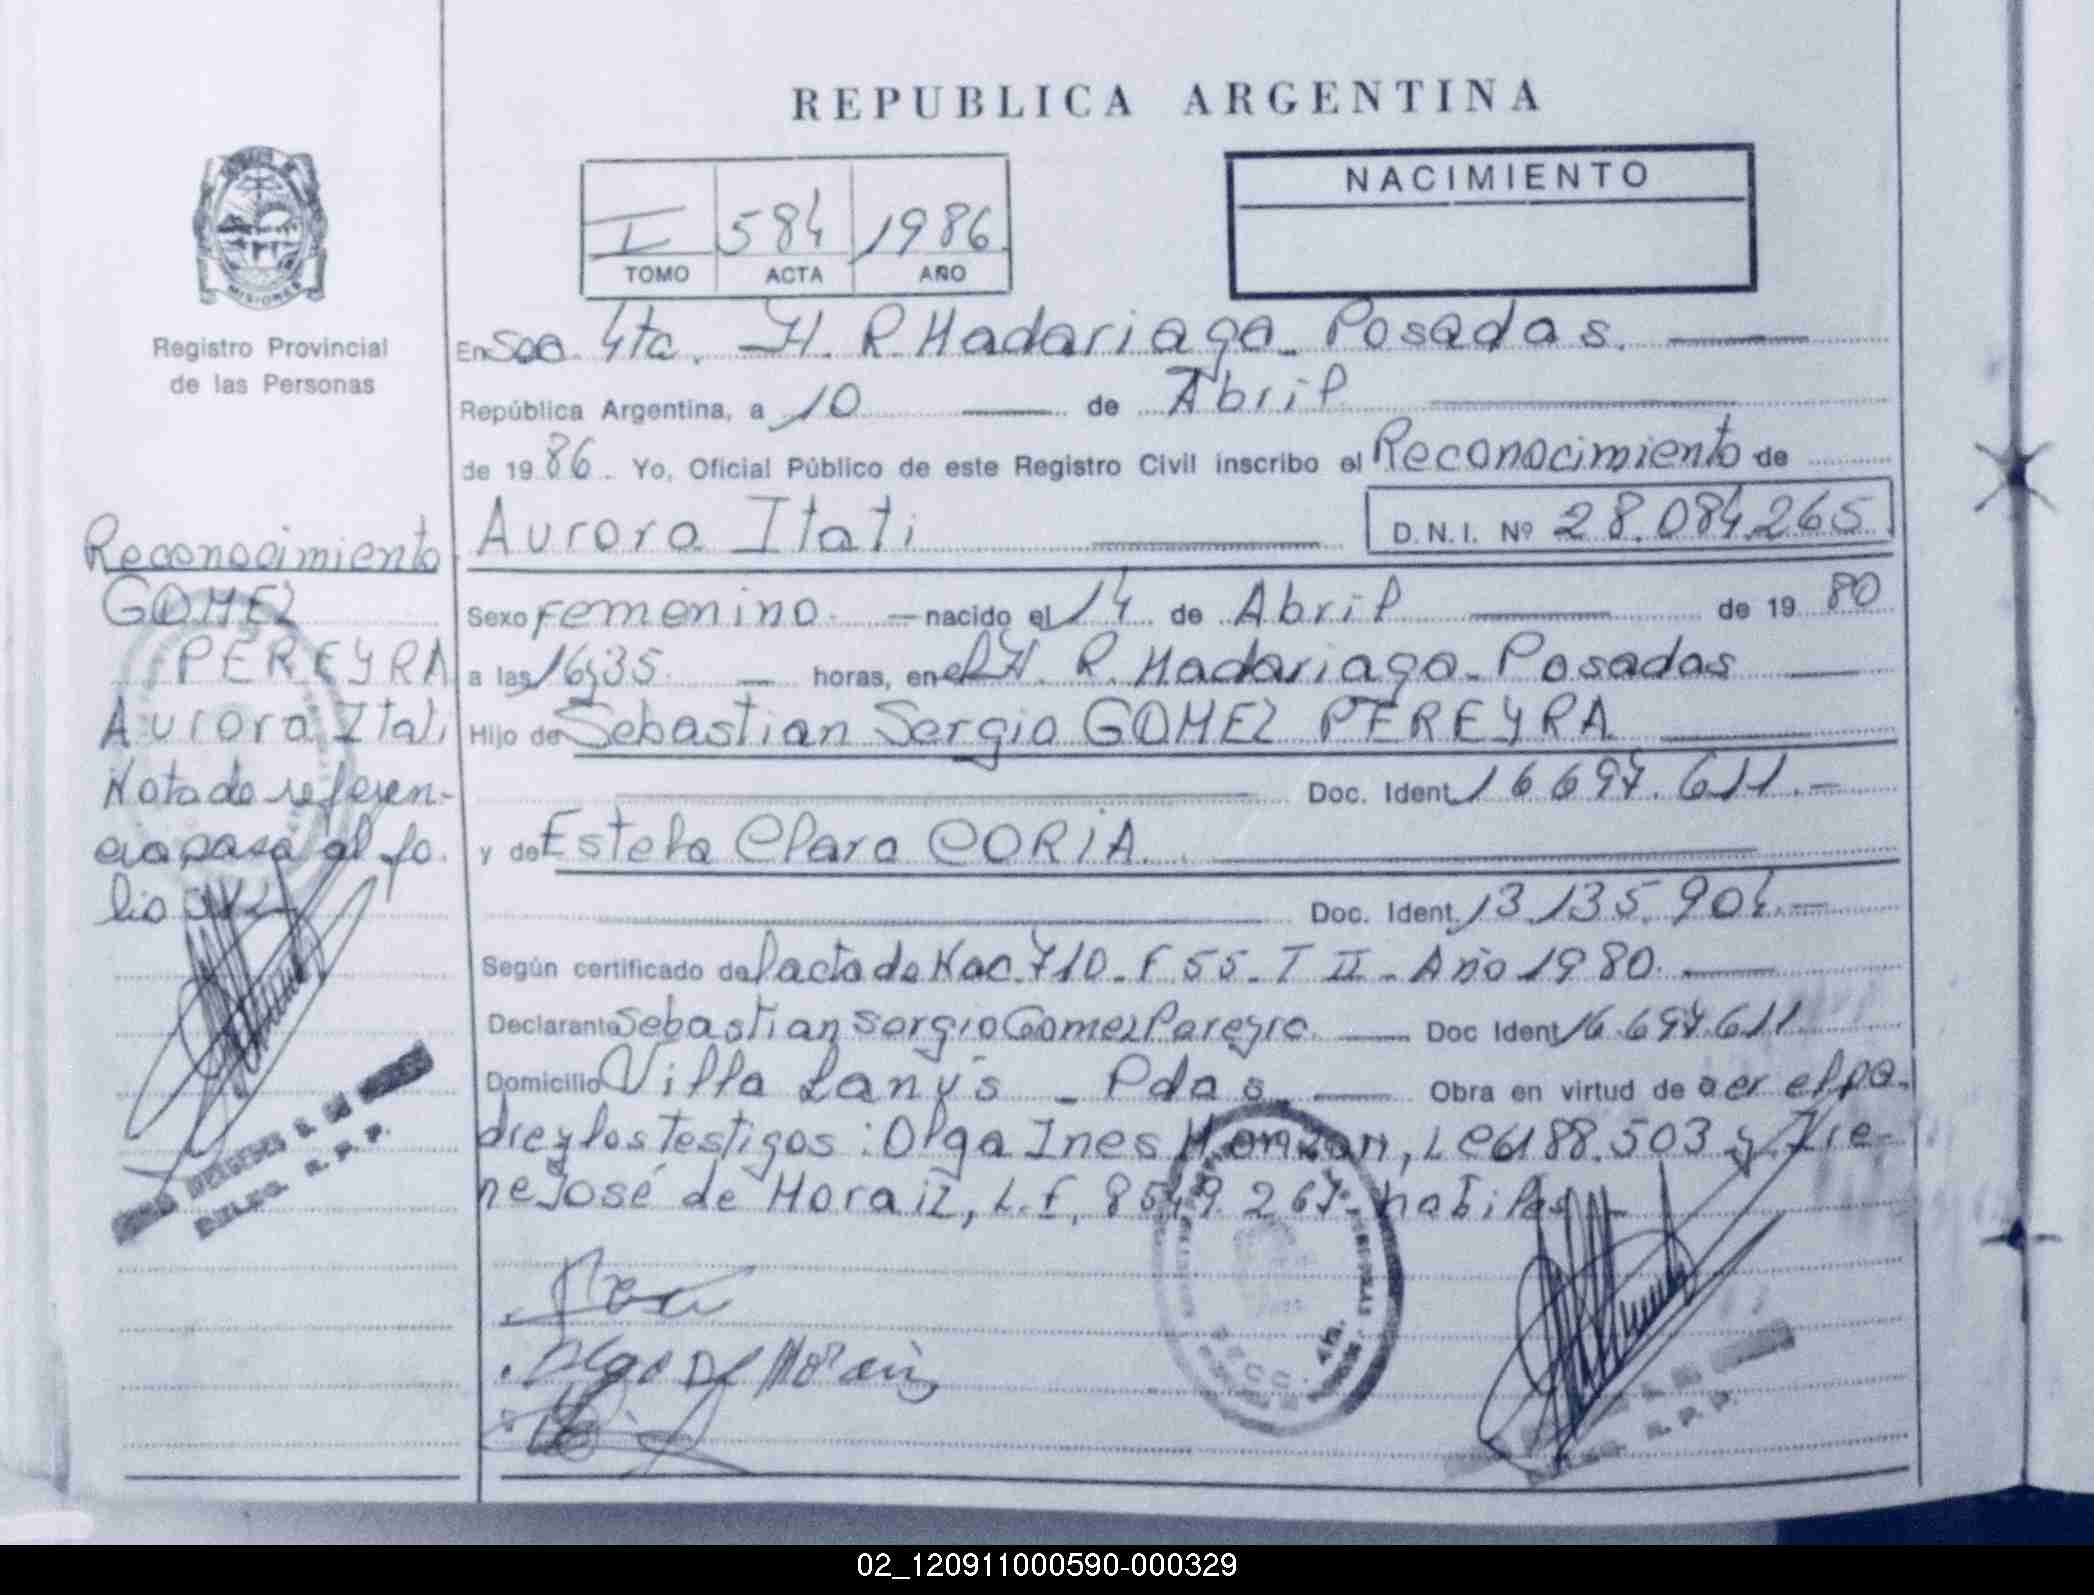 REPUBLICA ARGENTINA
NACIMIENTO
I 584 1986
TOMO ACTA AÑO
MISIONES
Registro Provincial
de las Personas
En Sec. 4ta. H. R. Madariaga - Posadas.
República Argentina, a 10 de Abril
de 19 86. Yo, Oficial Público de este Registro Civil inscribo el Reconocimiento de
Aurora Itati D.N.I. Nº 28.084.265
Sexo femenino. nacido el 14 de Abril de 19 80
a las 16,35 horas, en el H. R. Madariaga - Posadas
Hijo de Sebastian Sergio GOMEZ PEREYRA
Doc. Ident. 16 697.611.-
y de Estela Clara CORIA
Doc. Ident. 13.135.904.-
Según certificado del acta de Nac. 710 - F 55 - T II - Año 1980.
Declarante Sebastian Sergio Gomez Pereyra. Doc Ident 16.697.611
Domicilio Villa Lanús - Pdas. Obra en virtud de ser el pa-
dre y los testigos: Olga Ines Monzon, LC 6188.503 y Ire-
ne José de Moraiz, L.E. 8549.267. habiles
Olga De Moraiz
Reconocimiento
GOMEZ
PEREYRA
Aurora Itati
Nota de referen-
cia pasa al fo-
lio
DELEG. R. P. P.
02_120911000590-000329